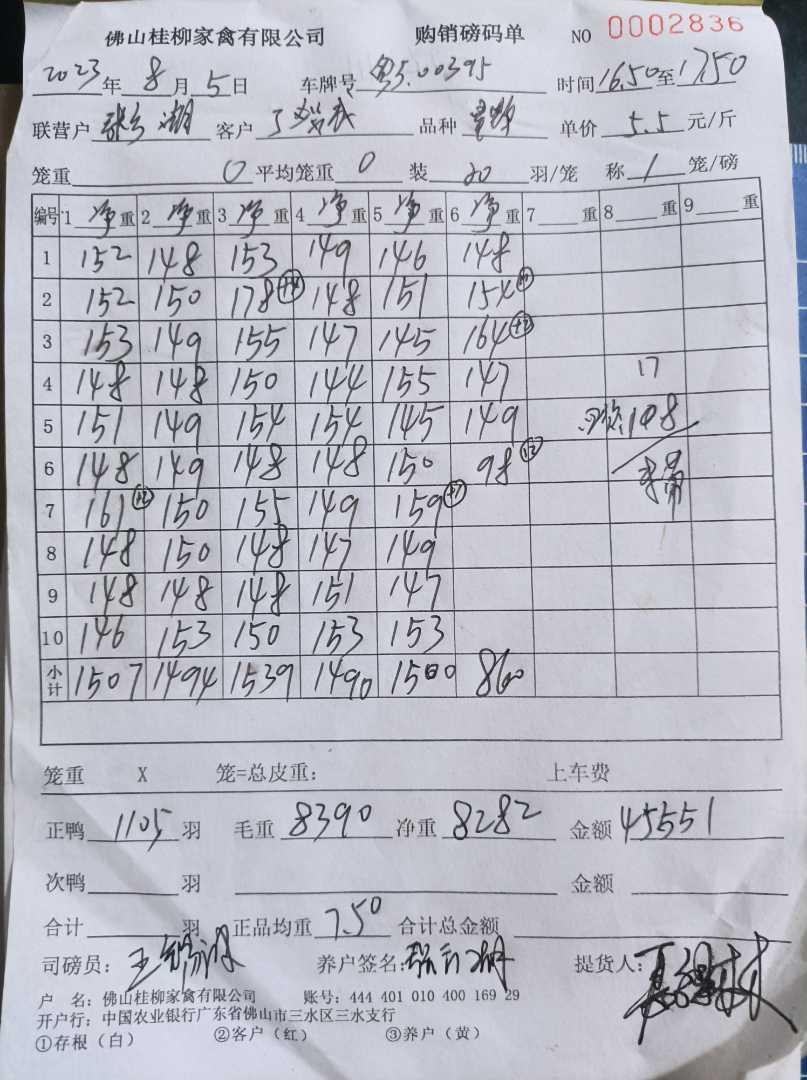 佛山桂柳家禽有限公司 购销磅码单 NO 0002836
2023年 8月 5日 车牌号 粤S.00395 时间16.50至17.50
联营户 客户 品种 单价 5.5 元/斤
笼重 0 平均笼重 0 装 20 羽/笼 称 1 笼/磅
编号 1 净 重 2 净 重 3 净 重 4 净 重 5 净 重 6 净 重 7 重 8 重 9 重
1 152 148 153 149 146 148
2 152 150 178 +4 148 151 154
3 153 149 155 147 145 164 +2
4 148 148 150 144 155 147 17
5 151 149 154 154 145 149 108
6 148 149 148 148 150 98 13
7 161 +2 150 155 149 159 +7
8 148 150 148 147 149
9 148 148 148 151 147
10 146 153 150 153 153
小计 1507 1494 1539 1490 1500 860
笼重 X 笼=总皮重: 上车费
正鸭 1105 羽 毛重 8390 净重 8282 金额 45551
次鸭 羽 金额
合计 羽 正品均重 7.50 合计总金额
司磅员: 养户签名: 提货人:
户 名: 佛山桂柳家禽有限公司 账号: 444 401 010 400 169 29
开户行: 中国农业银行广东省佛山市三水区三水支行
①存根（白） ②客户（红） ③养户（黄）